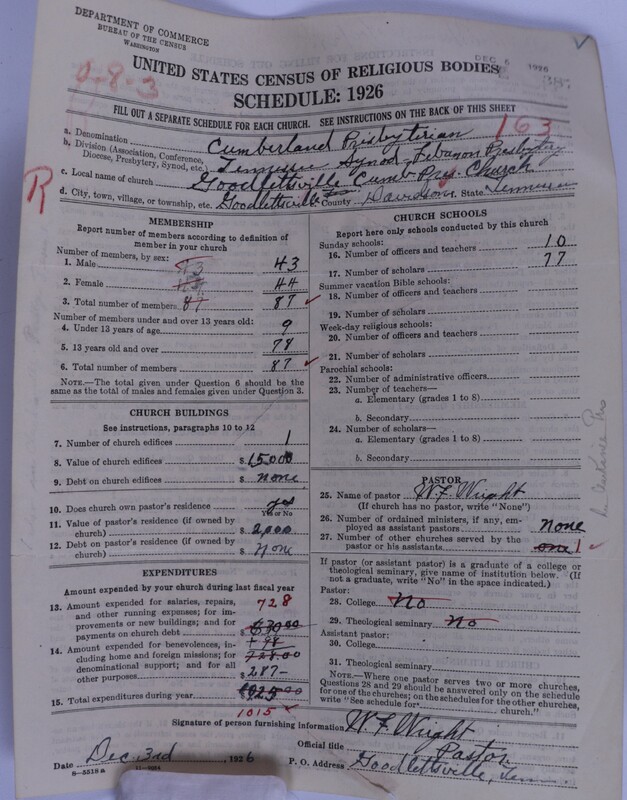 DEPARTMENT OF COMMERCE
BUREAU OF THE CENSUS
WASHINGTON
DEC 6 1926
0-8-3
UNITED STATES CENSUS OF RELIGIOUS BODIES
SCHEDULE: 1926
FILL OUT A SEPARATE SCHEDULE FOR EACH CHURCH. SEE INSTRUCTIONS ON THE BACK OF THIS SHEET
163
a. Denomination Cumberland Presbyterian
b. Division (Association, Conference, Diocese, Presbytery, Synod, etc.) Tennessee Synod, Lebanon Presbytery
c. Local name of church Goodlettsville Cumb Pres. Church
R
d. City, town, village, or township, etc. Goodlettsville County Davidson f. State Tennessee
MEMBERSHIP
Report number of members according to definition of
member in your church
Number of members, by sex:
1. Male 43
2. Female 44
3. Total number of members 87 87
Number of members under and over 13 years old:
4. Under 13 years of age 9
5. 13 years old and over 78
6. Total number of members 87
NOTE.—The total given under Question 6 should be
same as the total of males and females given under Question 3.
CHURCH BUILDINGS
See instructions, paragraphs 10 to 12
7. Number of church edifices 1
8. Value of church edifices $ 15000
9. Debt on church edifices $ none
10. Does church own pastor's residence yes
Yes or No
11. Value of pastor's residence (if owned by
church) $ 2,000
12. Debt on pastor's residence (if owned by
church) $ None
EXPENDITURES
Amount expended by your church during last fiscal year
13. Amount expended for salaries, repairs, 728
and other running expenses; for im-
provements or new buildings; and for
payments on church debt $
14. Amount expended for benevolences, in-
cluding home and foreign missions; for 728.00
denominational support; and for all
other purposes $ 287-
15. Total expenditures during year
1015
CHURCH SCHOOLS
Report here only schools conducted by this church
Sunday schools:
16. Number of officers and teachers 10
17. Number of scholars 77
Summer vacation Bible schools:
18. Number of officers and teachers
19. Number of scholars
Week-day religious schools:
20. Number of officers and teachers
21. Number of scholars
Parochial schools:
22. Number of administrative officers
23. Number of teachers—
a. Elementary (grades 1 to 8)
b. Secondary
24. Number of scholars—
a. Elementary (grades 1 to 8)
b. Secondary
PASTOR
25. Name of pastor W. F. Wright
(If church has no pastor, write "None")
26. Number of ordained ministers, if any, em-
ployed as assistant pastors none
27. Number of other churches served by the
pastor or his assistants one 1
If pastor (or assistant pastor) is a graduate of a college or
theological seminary, give name of institution below. (If
not a graduate, write "No" in the space indicated.)
Pastor:
28. College No
29. Theological seminary No
Assistant pastor:
30. College
31. Theological seminary
NOTE.—Where one pastor serves two or more churches,
Questions 28 and 29 should be answered only on the schedule
for one of the churches; on the schedules for the other churches,
write "See schedule for church."
Signature of person furnishing information W F Wright
Official title Pastor
Date Dec. 3rd, 1926 P. O. Address Goodlettsville, Tenn.
8—5518 a